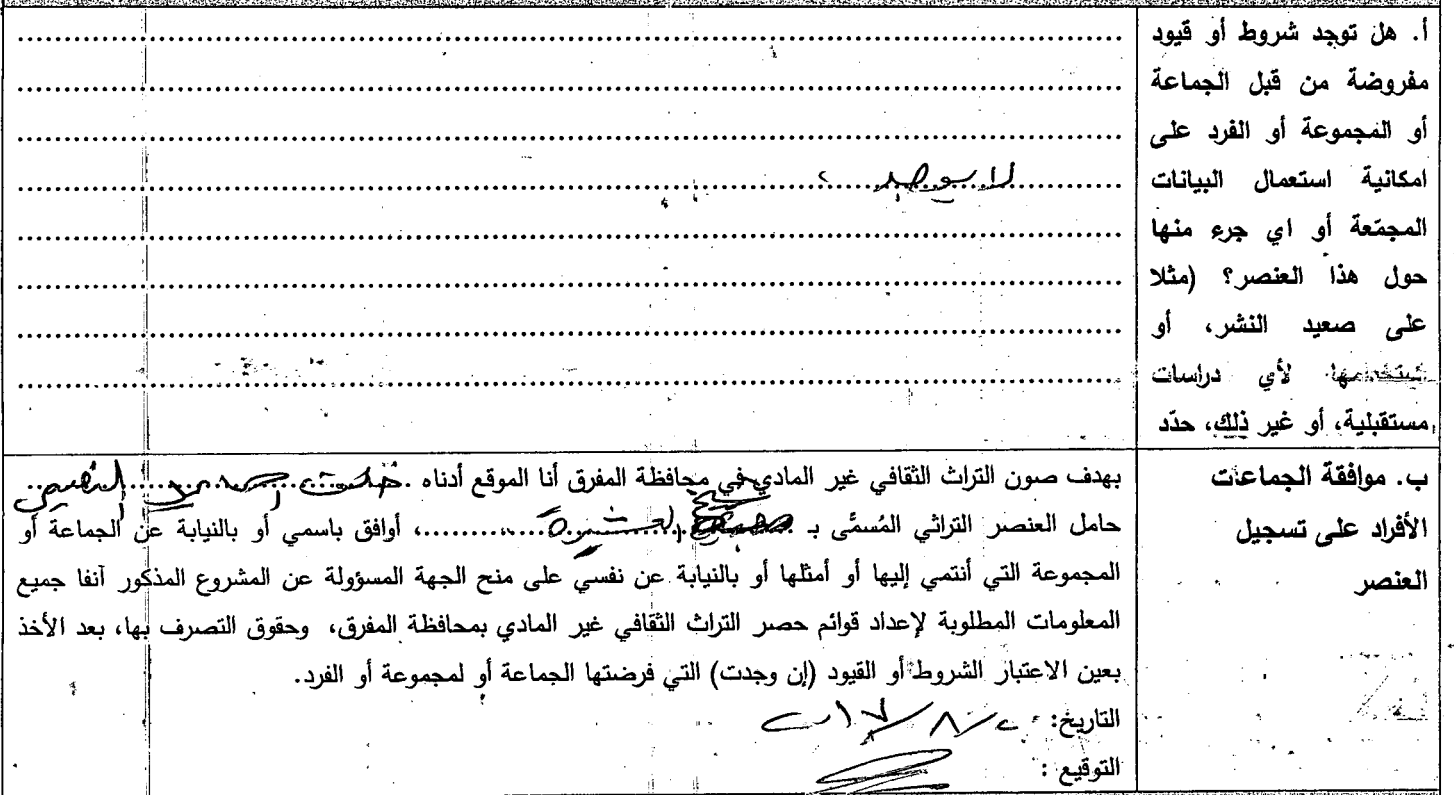 أ. هل توجد شروط أو قيود
مفروضة من قبل الجماعة
أو المجموعة أو الفرد على
امكانية استعمال البيانات
المجمّعة أو اي جرء منها
حول هذا العنصر؟ (مثلا
على صعيد النشر، أو
لأي دراسات
مستقبلية، أو غير ذلك، حدّد
لا يوجد
ب. موافقة الجماعات
الأفراد على تسجيل
العنصر
بهدف صون التراث الثقافي غير المادي في محافظة المفرق أنا الموقع أدناه
حامل العنصر التراثي المُسمَّى بـ ، أوافق باسمي أو بالنيابة عن الجماعة أو
المجموعة التي أنتمي إليها أو أمثلها أو بالنيابة عن نفسي على منح الجهة المسؤولة عن المشروع المذكور آنفا جميع
المعلومات المطلوبة لإعداد قوائم حصر التراث الثقافي غير المادي بمحافظة المفرق، وحقوق التصرف بها، بعد الأخذ
بعين الاعتبار الشروط أو القيود (إن وجدت) التي فرضتها الجماعة أو لمجموعة أو الفرد.
التاريخ:
التوقيع :